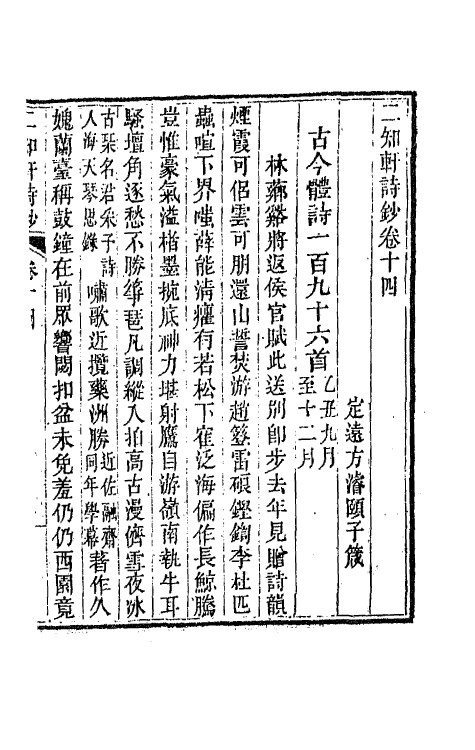 二知軒詩鈔卷十四
定遠方濬頤子箴
古今體詩一百九十六首乙丑九月至十二月
林薌谿將返侯官賦此送別卽步去年見贈詩韻
煙霞可侶雲可朋還山誓焚游趙簦雷硠鏗鍧李杜匹
蟲喧下界嗤薛能淸癯有若松下隺泛海偏作長鯨騰
豈惟豪氣溢楮墨挽底神力堪射鷹自游嶺南執牛耳
騷壇角逐愁不勝箏琶凡調縱入拍高古漫儕雪夜冰
古琹名君采子詩人海天琴思錄嘯歌近攬藥洲勝近佐融齋同年學幕著作久
媿蘭臺稱鼓鐘在前眾響閟扣盆未免羞仍仍西園竟
二知軒詩鈔 卷十四